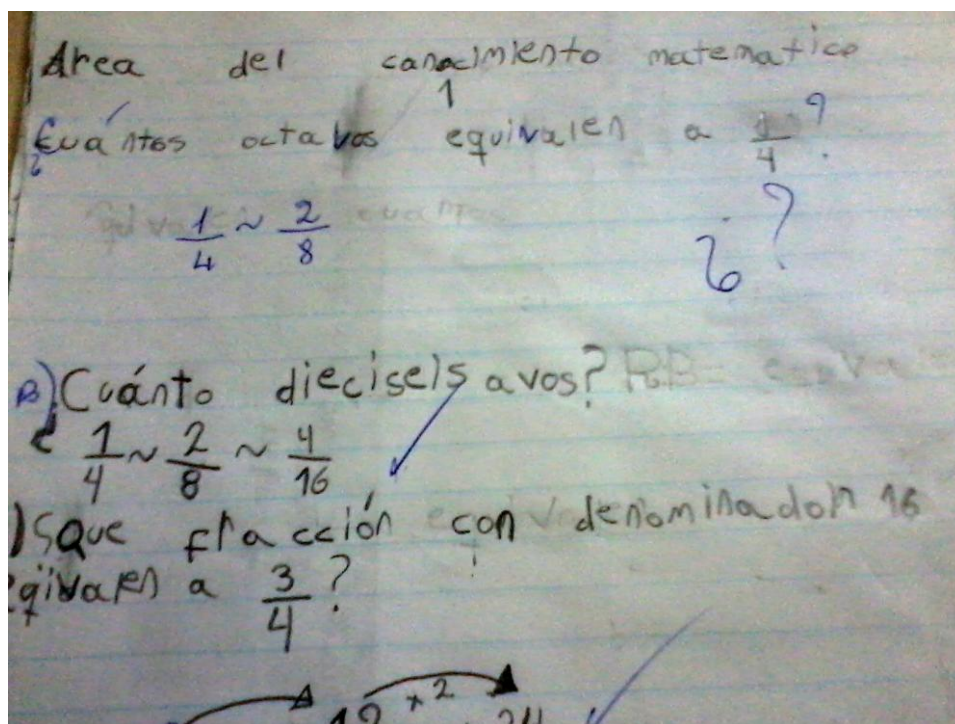 Area del conocimiento matematico
1
¿Cuántos octavos equivalen a 1/4?
1/4 ~ 2/8
¿?
B) Cuánto dieciseis avos?
1/4 ~ 2/8 ~ 4/16
) ¿Que fracción con denominador 16
eqivalen a 3/4?
12 x2 24